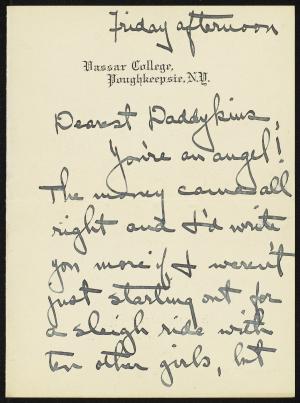 Friday afternoon
Vassar College,
Poughkeepsie, N.Y.
Dearest Daddykins,
You're an angel!
The money came all
right and I'd write
you more if I weren't
just starting out for
a sleigh ride with
ten other girls, but